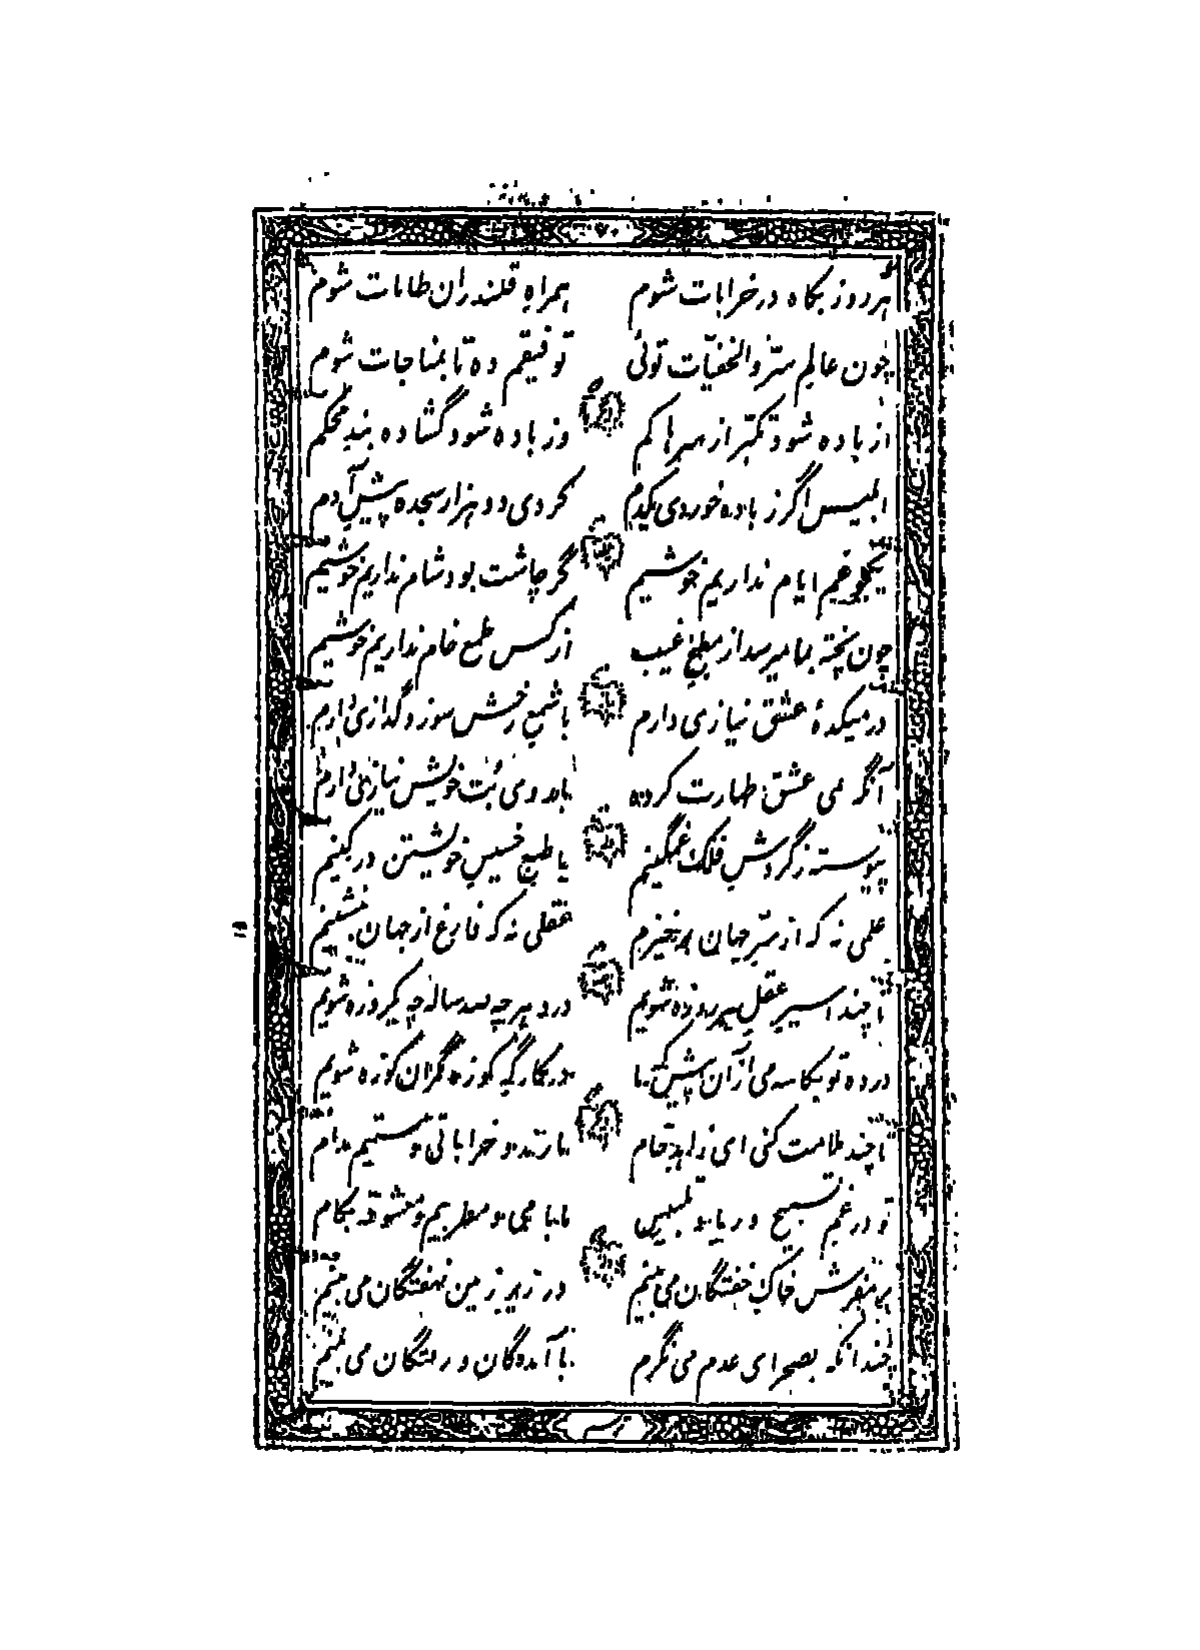 هر روز بگاه در خرابات شوم همراه قلندران طامات شوم
چون عالم سرّ والخفیّات توئی توفیقم ده تا بمناجات شوم
از باده شود تکبّر از سرها کم وز باده شود گشاده بند محکم
ابلیس اگر ز باده خوردی یکدم کردی دو هزار سجده پیش آدم
یکجو غم ایام نداریم خوشیم گر چاشت بود شام نداریم خوشیم
چون پخته بما میرسد از مطبخ غیب از کس طمع خام نداریم خوشیم
در میکدهٔ عشق نیازی دارم با شمع رخش سوز و گدازی دارم
آنگر می عشق طهارت کرده با روی بت خویش نیازی دارم
پیوسته ز گردش فلک غمگینم با طبع خسیس خویشتن در کینم
علمی نه که از سرّ جهان برخیزم عقلی نه که فارغ از جهان بنشینم
تا چند اسیر عقل هر روزه شویم در دهر چه صد ساله چه یکروزه شویم
در ده تو بکاسه می از آن پیش که ما در کارگه کوزه گران کوزه شویم
تا چند ملامت کنی ای زاهد خام ما رند و خراباتی و مستیم مدام
تو در غم تسبیح و ریا و تلبیس ما با می و مطربیم و معشوقه بکام
بر مفرش خاک خفتگان می بینم در زیر زمین نهفتگان می بینم
چندانکه بصحرای عدم می نگرم نا آمدگان و رفتگان می بینم